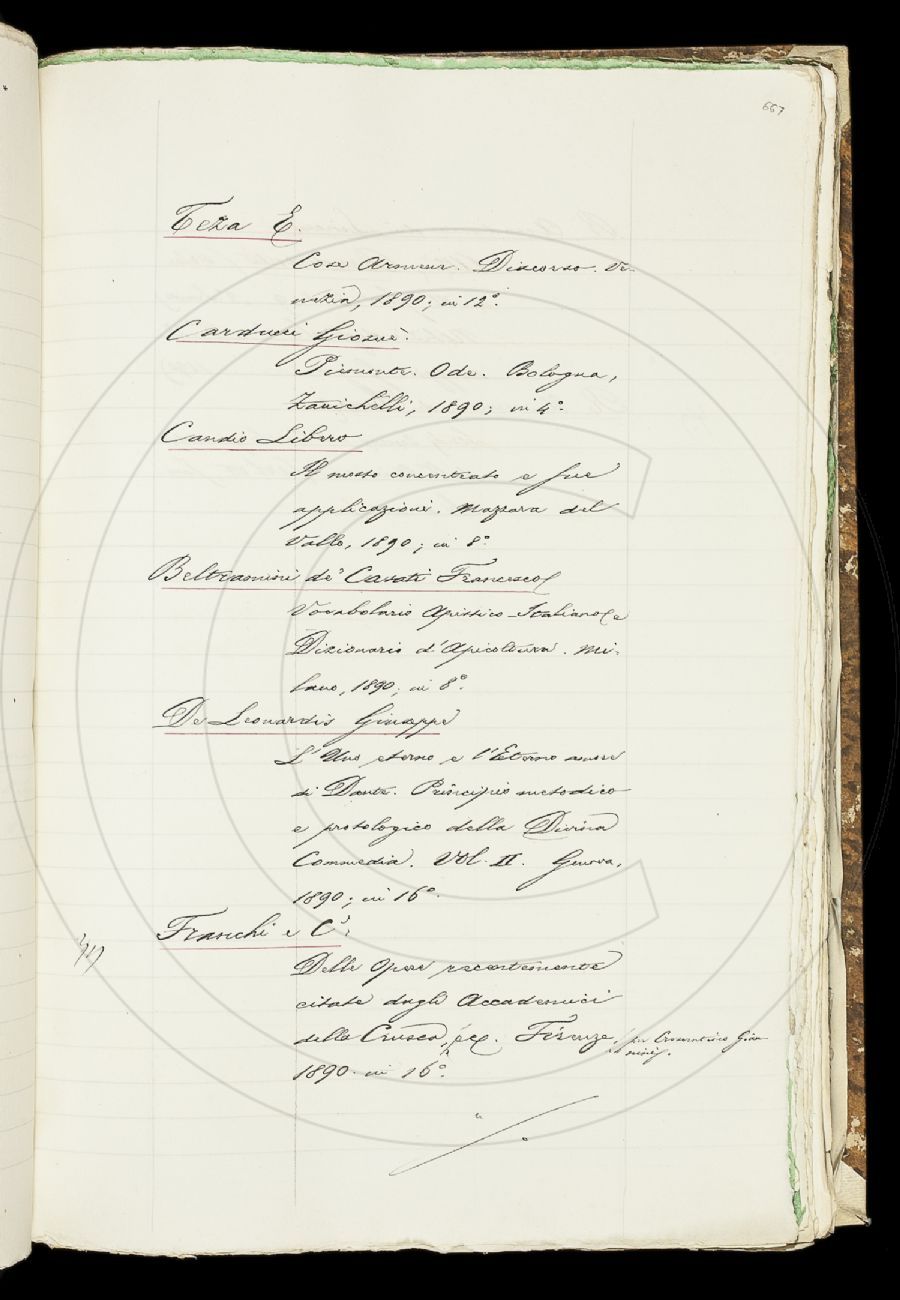 667
Teza E.
Cose Armene. Discorso. Ve-
nezia, 1890; in 12º.
Carducci Giosuè.
Piemonte. Ode. Bologna,
Zanichelli, 1890; in 4º.
Candio Libero
Il mosto concentrato e sue
applicazioni. Mazzara del
Vallo, 1890; in 8º.
Beltramini de' Casati Francesco
Vocabolario Apistico-Italiano e
Dizionario d'Apicoltura. Mi-
lano, 1890; in 8º.
De Leonardis Giuseppe
L'Uno eterno e l'Eterno amore
di Dante. Principio metodico
e protologico della Divina
Commedia. Vol. II. Genova,
1890; in 16º.
Franchi e Cⁱ.
Delle opere recentemente
citate dagli Accademici
della Crusca, ecc. Firenze,
per Crescentino Gian
nini.
1890. in 16º.